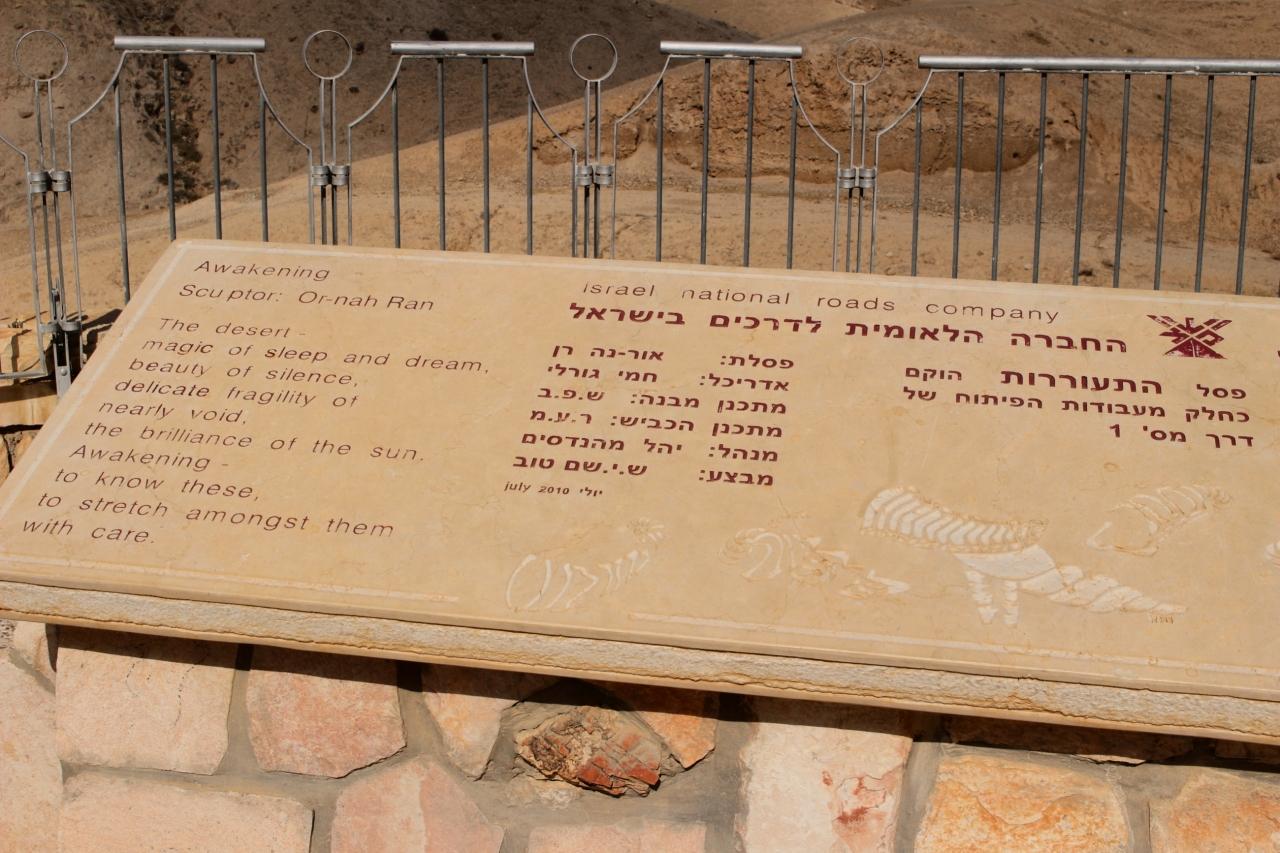 Awakening
Sculptor: Or-nah Ran
The desert -
magic of sleep and dream,
beauty of silence,
delicate fragility of
nearly void,
the brilliance of the sun.
Awakening -
to know these,
to stretch amongst them
with care.
israel national roads company
החברה הלאומית לדרכים בישראל
פסלת: אור-נה רן
אדריכל: חמי גורלי
מתכנן מבנה: ש.פ.ב
מתכנן הכביש: ר.ע.מ
מנהל: יהל מהנדסים
מבצע: ש.י.שם טוב
יולי july 2010
פסל התעוררות הוקם
כחלק מעבודות הפיתוח של
דרך מס' 1